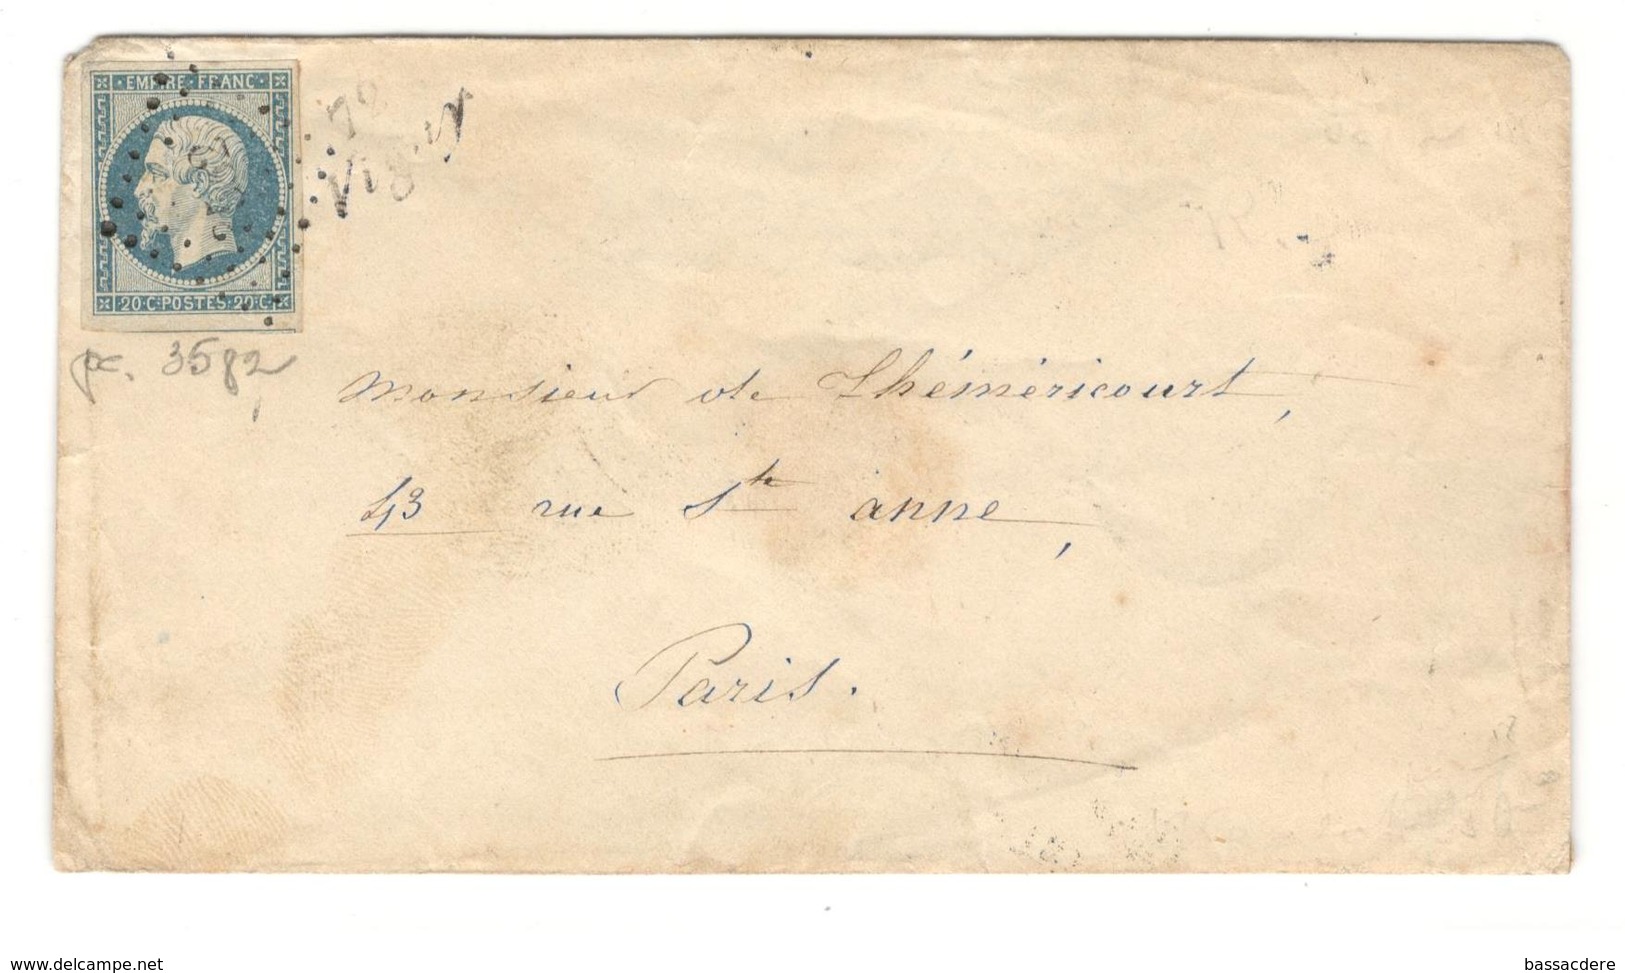 EMPIRE FRANC
20·C·POSTES·20·C
72
Vigy
pc. 3582
Monsieur de Lhéméricourt,
43 rue Ste anne,
Paris.
www.delcampe.net
bassacdere